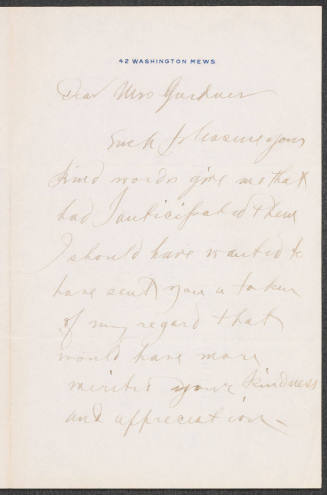 42 WASHINGTON MEWS
Dear Mrs Gardner
Such pleasure your
kind words give me that
had I anticipated them
I should have wanted to
have sent you a token
of my regard that
would have more
merited your kindness
and appreciation —